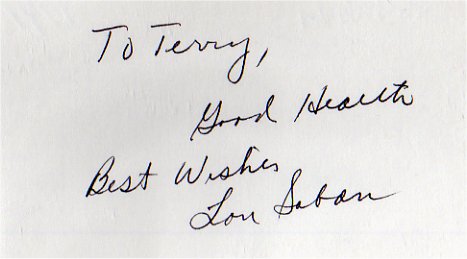 To Terry,
Good Health
Best Wishes
Lou Saban